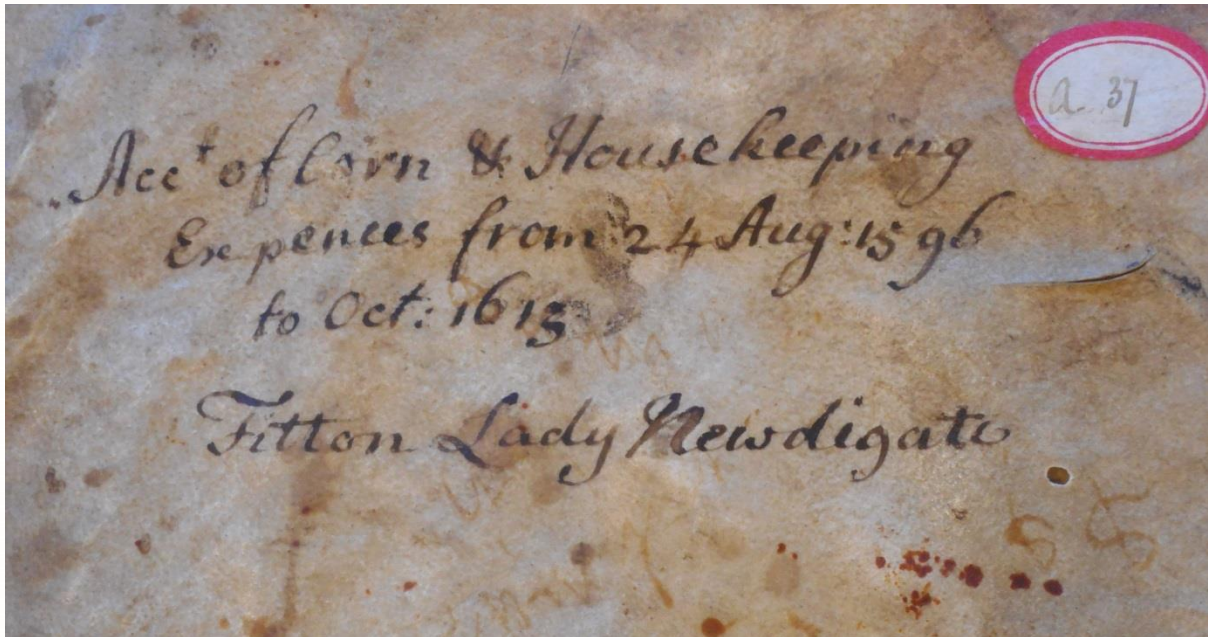 a. 37
Acct of Corn & Housekeeping
Expences from 24 Aug: 1596
to Oct: 1613
Fitton Lady Newdigate